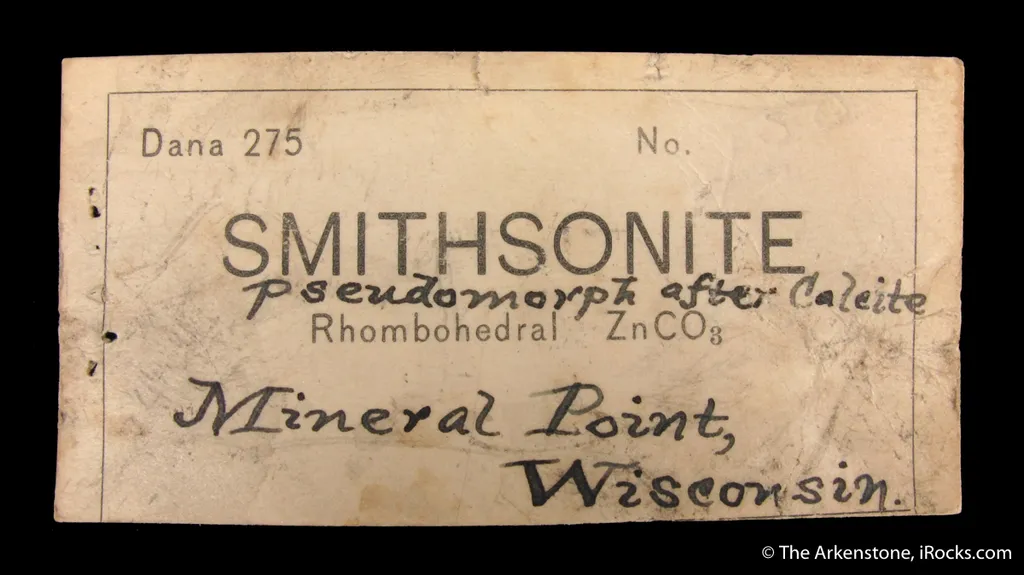 Dana 275 No.
SMITHSONITE
pseudomorph after Calcite
Rhombohedral ZnCO₃
Mineral Point,
Wisconsin.
© The Arkenstone, iRocks.com